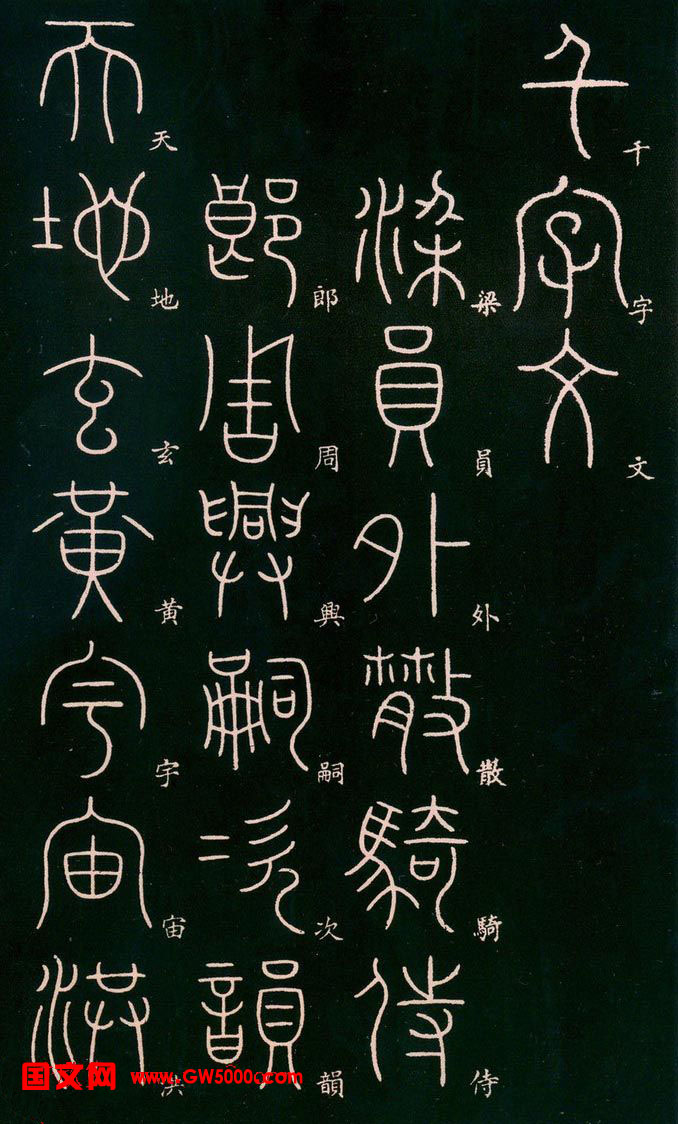 千字文
梁員外散騎侍
郎周興嗣次韻
天地玄黃宇宙洪
国文网 www.GW5000.com